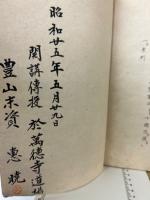 昭和廿五年五月廿九日
開講傳授 於萬德寺道場
豊山末資 惠曉